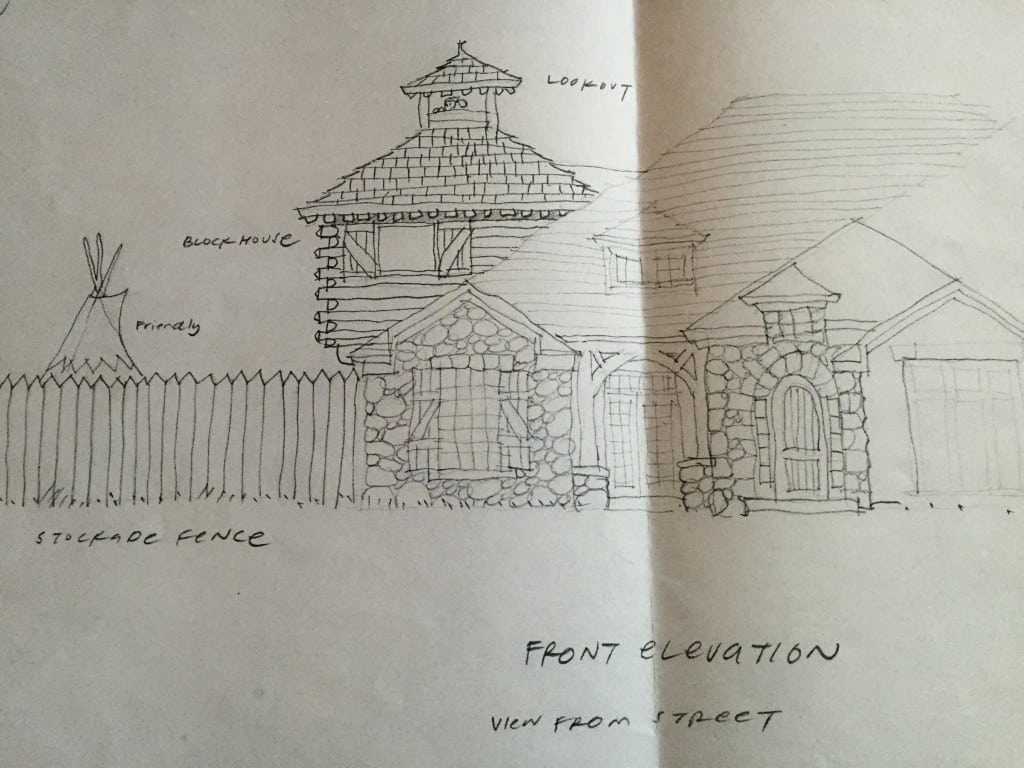 LOOKOUT
BLOCKHOUSE
Friendly
STOCKADE FENCE
FRONT ELEVATION
VIEW FROM STREET